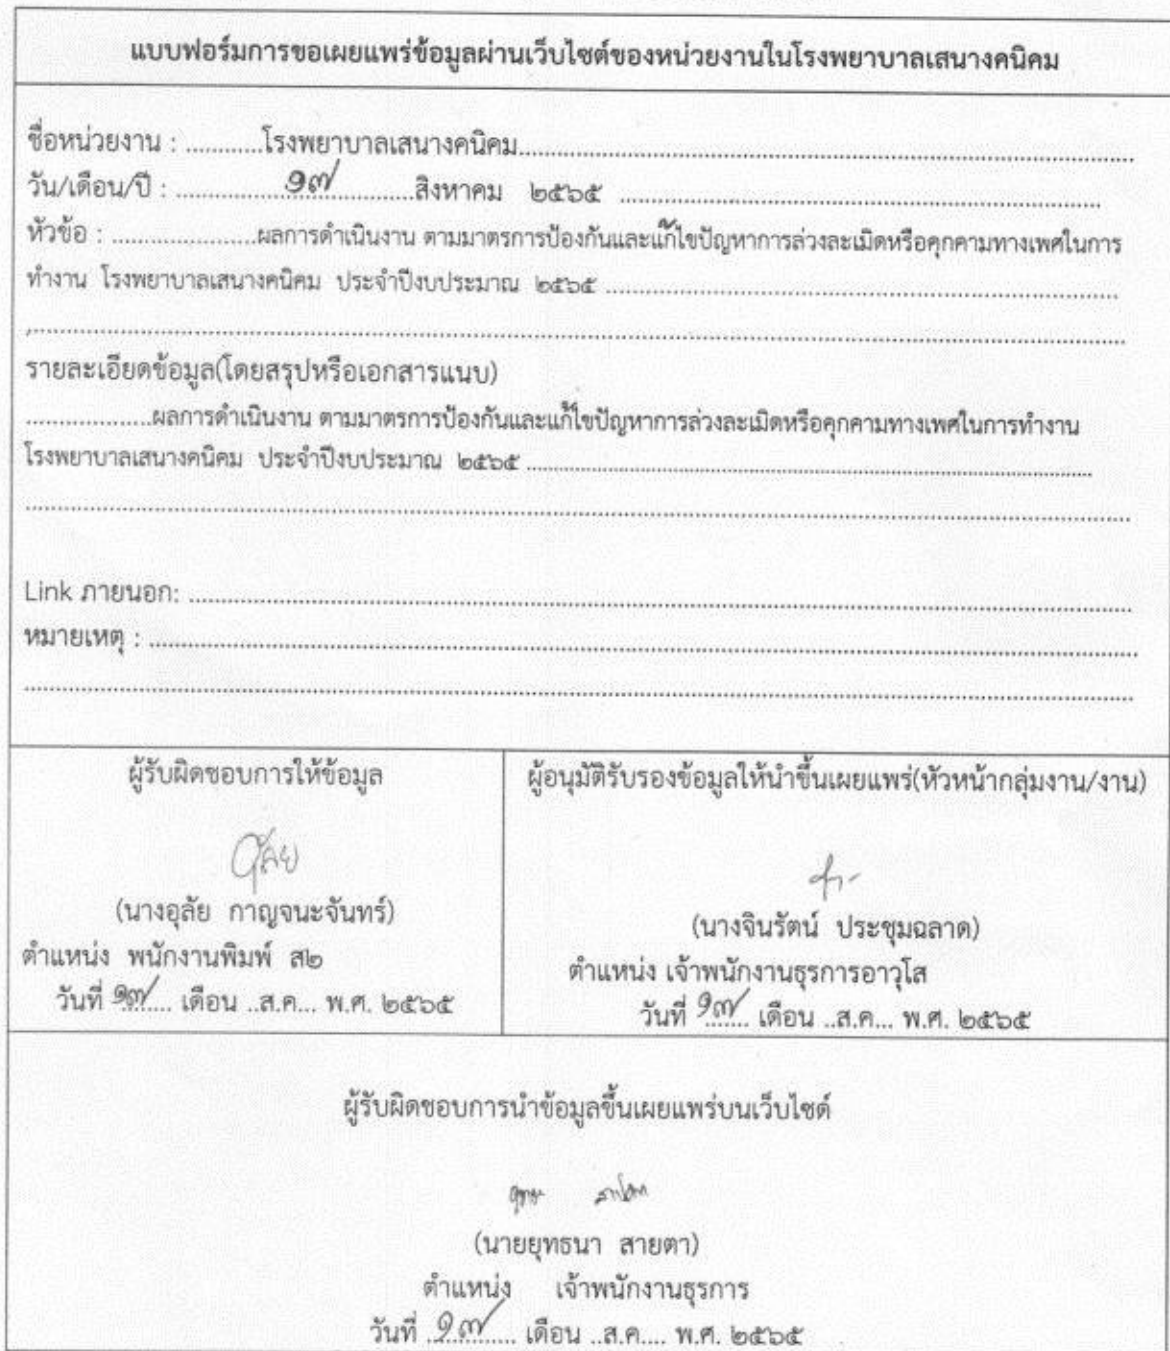 แบบฟอร์มการขอเผยแพร่ข้อมูลผ่านเว็บไซต์ของหน่วยงานในโรงพยาบาลเสนางคนิคม
ชื่อหน่วยงาน : ............โรงพยาบาลเสนางคนิคม............
วัน/เดือน/ปี : ............๑๗............สิงหาคม ๒๕๖๕ ............
หัวข้อ : ............ผลการดำเนินงาน ตามมาตรการป้องกันและแก้ไขปัญหาการล่วงละเมิดหรือคุกคามทางเพศในการ
ทำงาน โรงพยาบาลเสนางคนิคม ประจำปีงบประมาณ ๒๕๖๕ ............
รายละเอียดข้อมูล(โดยสรุปหรือเอกสารแนบ)
............ผลการดำเนินงาน ตามมาตรการป้องกันและแก้ไขปัญหาการล่วงละเมิดหรือคุกคามทางเพศในการทำงาน
โรงพยาบาลเสนางคนิคม ประจำปีงบประมาณ ๒๕๖๕ ............
Link ภายนอก: ............
หมายเหตุ : ............
ผู้รับผิดชอบการให้ข้อมูล
อุลัย
(นางอุลัย กาญจนะจันทร์)
ตำแหน่ง พนักงานพิมพ์ ส๒
วันที่ ๑๗.... เดือน ..ส.ค... พ.ศ. ๒๕๖๕
ผู้อนุมัติรับรองข้อมูลให้นำขึ้นเผยแพร่(หัวหน้ากลุ่มงาน/งาน)
(นางจินรัตน์ ประชุมฉลาด)
ตำแหน่ง เจ้าพนักงานธุรการอาวุโส
วันที่ ๑๗.... เดือน ..ส.ค... พ.ศ. ๒๕๖๕
ผู้รับผิดชอบการนำข้อมูลขึ้นเผยแพร่บนเว็บไซต์
(นายยุทธนา สายตา)
ตำแหน่ง เจ้าพนักงานธุรการ
วันที่ ..๑๗.... เดือน ..ส.ค.... พ.ศ. ๒๕๖๕